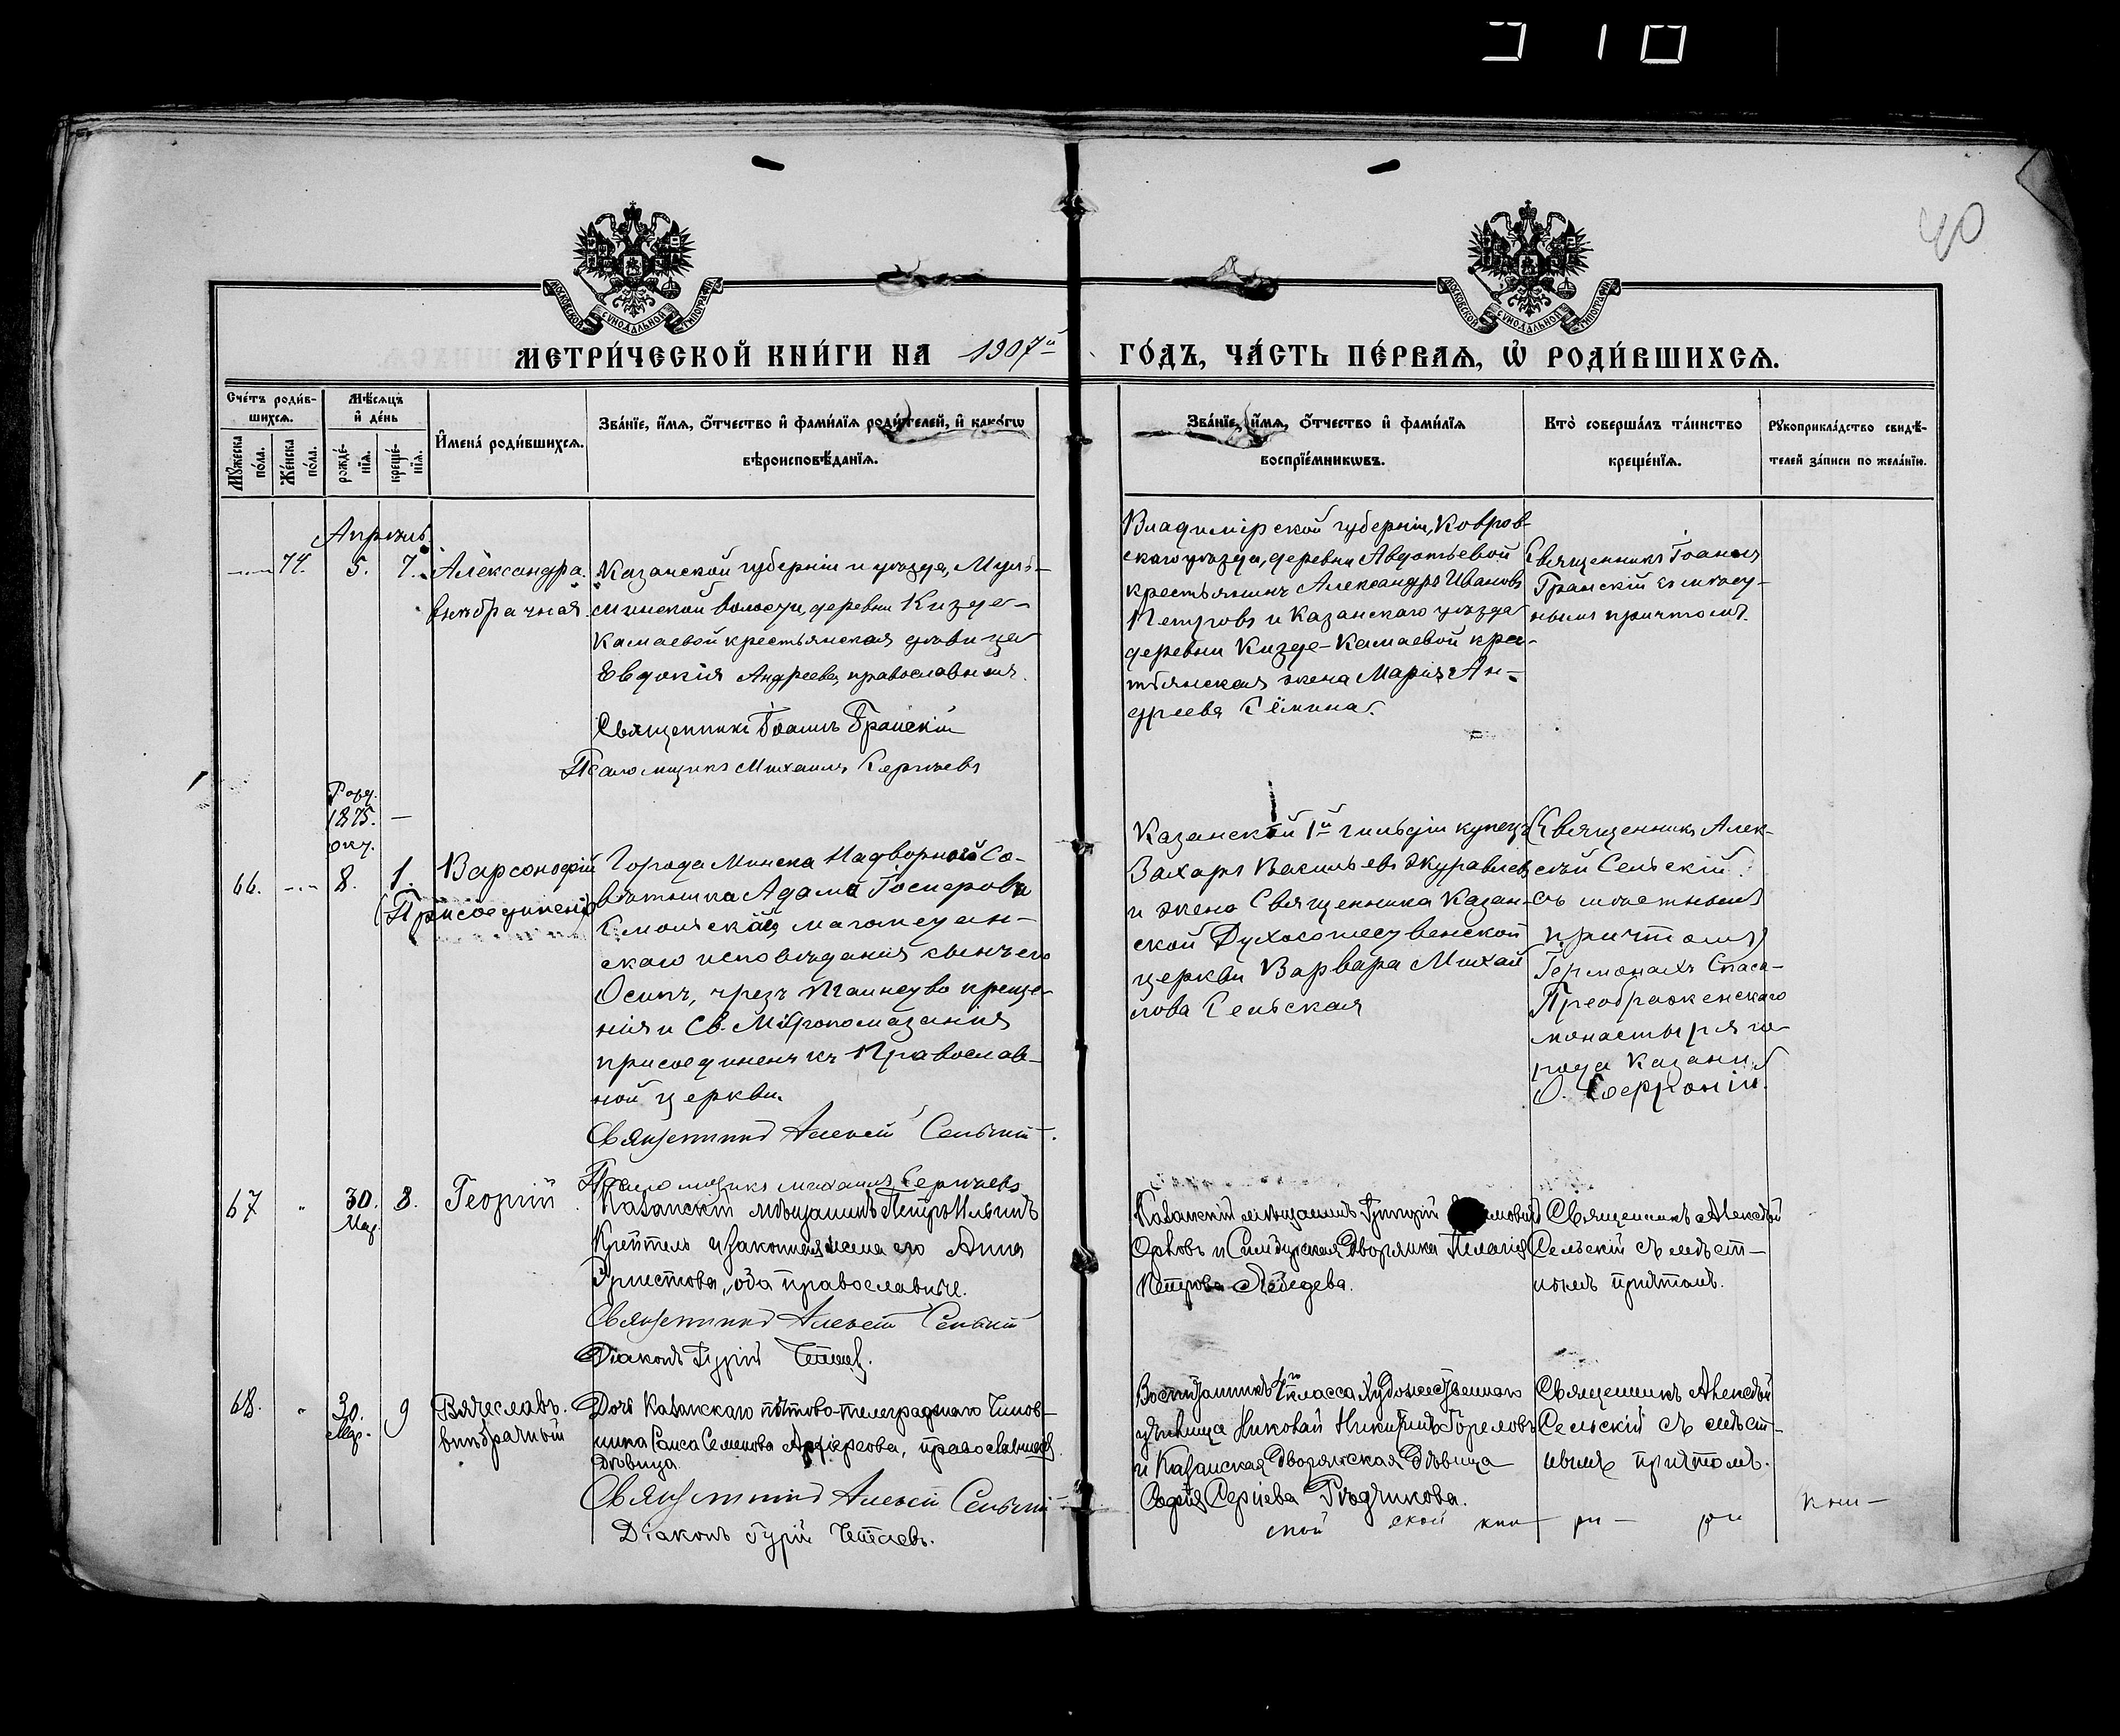 310
40
МОСКОВСКОЙ СѴНОДАЛЬНОЙ ТИПОГРАФІИ
МОСКОВСКОЙ СѴНОДАЛЬНОЙ ТИПОГРАФІИ
МЕТРИ́ЧЕСКОЙ КНИ́ГИ НА 1907й ГО́ДЪ, ЧА́СТЬ ПЕ́РВАѦ, Ѽ РОДИ́ВШИХСѦ.
Сче́тъ роди́в-
шихсѧ.
Мѣ́сѧцъ
и҆ де́нь
Мꙋ́жеска
по́ла.
Же́нска
по́ла.
рожде́-
нїѧ.
креще́-
нїѧ.
И҆мена̀ роди́вшихсѧ.
Зва́нїе, и҆́мѧ, ѻ҆́тчество и҆ фами́лїѧ роди́телей, и҆ како́гѡ
вѣроисповѣ́данїѧ.
Зва́нїе, и҆́мѧ, ѻ҆́тчество и҆ фами́лїѧ
воспрїе́мникѡвъ.
Кто̀ соверша́лъ та́инство
креще́нїѧ.
Рꙋкоприкла́дство свидѣ́-
телей за́писи по жела́нїю.
Апрѣль
74. 5. 7. Александра.
внѣбрачная.
Казанской губерніи и уѣзда, Муль-
минской волости, деревни Кизде-
Камаевой крестьянская дѣвица
Евдокія Андреева, православная.
Священникъ Іоаннъ Гранскій
Псаломщикъ Михаилъ Сергѣевъ
Владимірской губерніи, Ковров-
скаго уѣзда, деревни Авдотьевой
крестьянинъ Александръ Ивановъ
Петровъ и Казанскаго уѣзда
деревни Кизде-Камаевой кре-
стьянская жена Марія Ан-
дреева Сёмина.
Священникъ Іоаннъ
Гранскій съ мѣст-
нымъ причтомъ.
Род.
1875. —
окт.
66. 8. 1. Варсонофій
(Присоединеніе)
Города Минска Надворнаго Со-
вѣтника Адама Іосифова
Смольскаго, магометан-
скаго исповѣданія сынъ его
Осипъ, чрезъ таинство креще-
нія и Св. Мѵропомазанія
присоединенъ къ Православ-
ной церкви.
Священникъ Алексій Сельскій.
Псаломщикъ Михаилъ Сергѣевъ
Казанской 1й гильдіи купецъ
Захаръ Васильевъ Журавлевъ
и жена Священника Казан-
ской Духосошественской
церкви Варвара Михай
лова Сельская
Священникъ Алек-
сѣй Сельскій
съ мѣстнымъ
причтомъ
Іеромонахъ Спасо-
Преображенскаго
монастыря го-
рода Казани
О. Софроній.
67 30. Мар. 8. Георгій
Казанскій мѣщанинъ Петръ Ильинъ
Крептель и законная жена его Анна
Христова, оба православные.
Священникъ Алексій Сельскій
Діаконъ Гурій
Казанскій мѣщанинъ Григорій
Орловъ и Симбирская дворянка Пелагія
Петрова Лебедева.
Священникъ Алексѣй
Сельскій съ мѣст-
нымъ притомъ.
68. 30. Мар. 9 Вячеславъ.
внѣбрачный
Дочь Казанскаго почтово-телеграфнаго Чинов-
ника Раиса Семенова православная
Дѣвица
Священникъ Алексій Сельскій
Діаконъ Гурій
Воспитанникъ класса Художественнаго
училища Николай Никитинъ Гореловъ
и Казанская Дворянская Дѣвица
Софія Сергіева
Священникъ Алексѣй
Сельскій съ мѣст-
нымъ притомъ.
ской